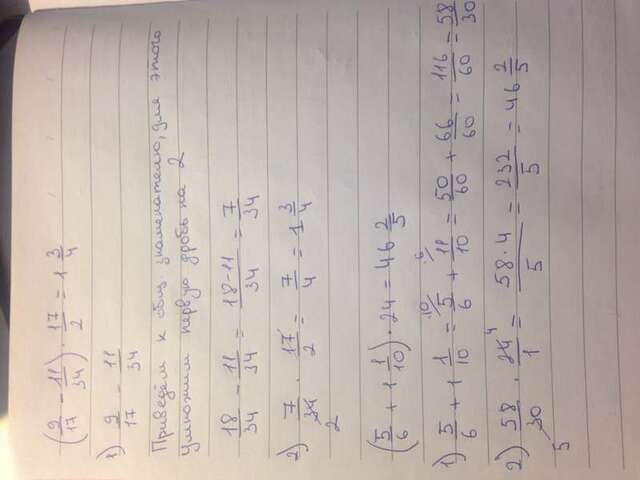 (9/17 - 11/34) · 17/2 = 1 3/4
1) 9/17 - 11/34
Приведём к общ. знаменателю, для этого
умножим первую дробь на 2
18/34 - 11/34 = 18-11/34 = 7/34
2) 7/34 2 · 17/2 = 7/4 = 1 3/4
(5/6 + 1 1/10) · 24 = 46 2/5
1) 5/6 + 1 1/10 = 5/6 ·10 + 11/10 ·6 = 50/60 + 66/60 = 116/60 = 58/30
2) 58/30 5 · 24/1 4 = 58·4/5 = 232/5 = 46 2/5